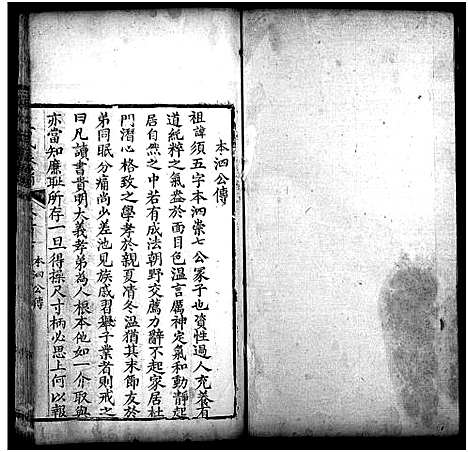 本泗公傳
祖諱須五字本泗崇七公冢子也資性過人充養有
道純粹之氣盎於面目色溫言厲神定氣和動靜起
居自然之中若有成法朝野交薦力辭不起家居杜
門潛心格致之學孝於親夏凊冬溫猶其末節友於
弟同眠分痛尚少差池見族戚習舉子業者則戒之
曰凡讀書貴明大義孝弟為人根本他如一介取與
亦當知廉恥所存一旦得操尺寸柄必思上何以報
本泗公傳